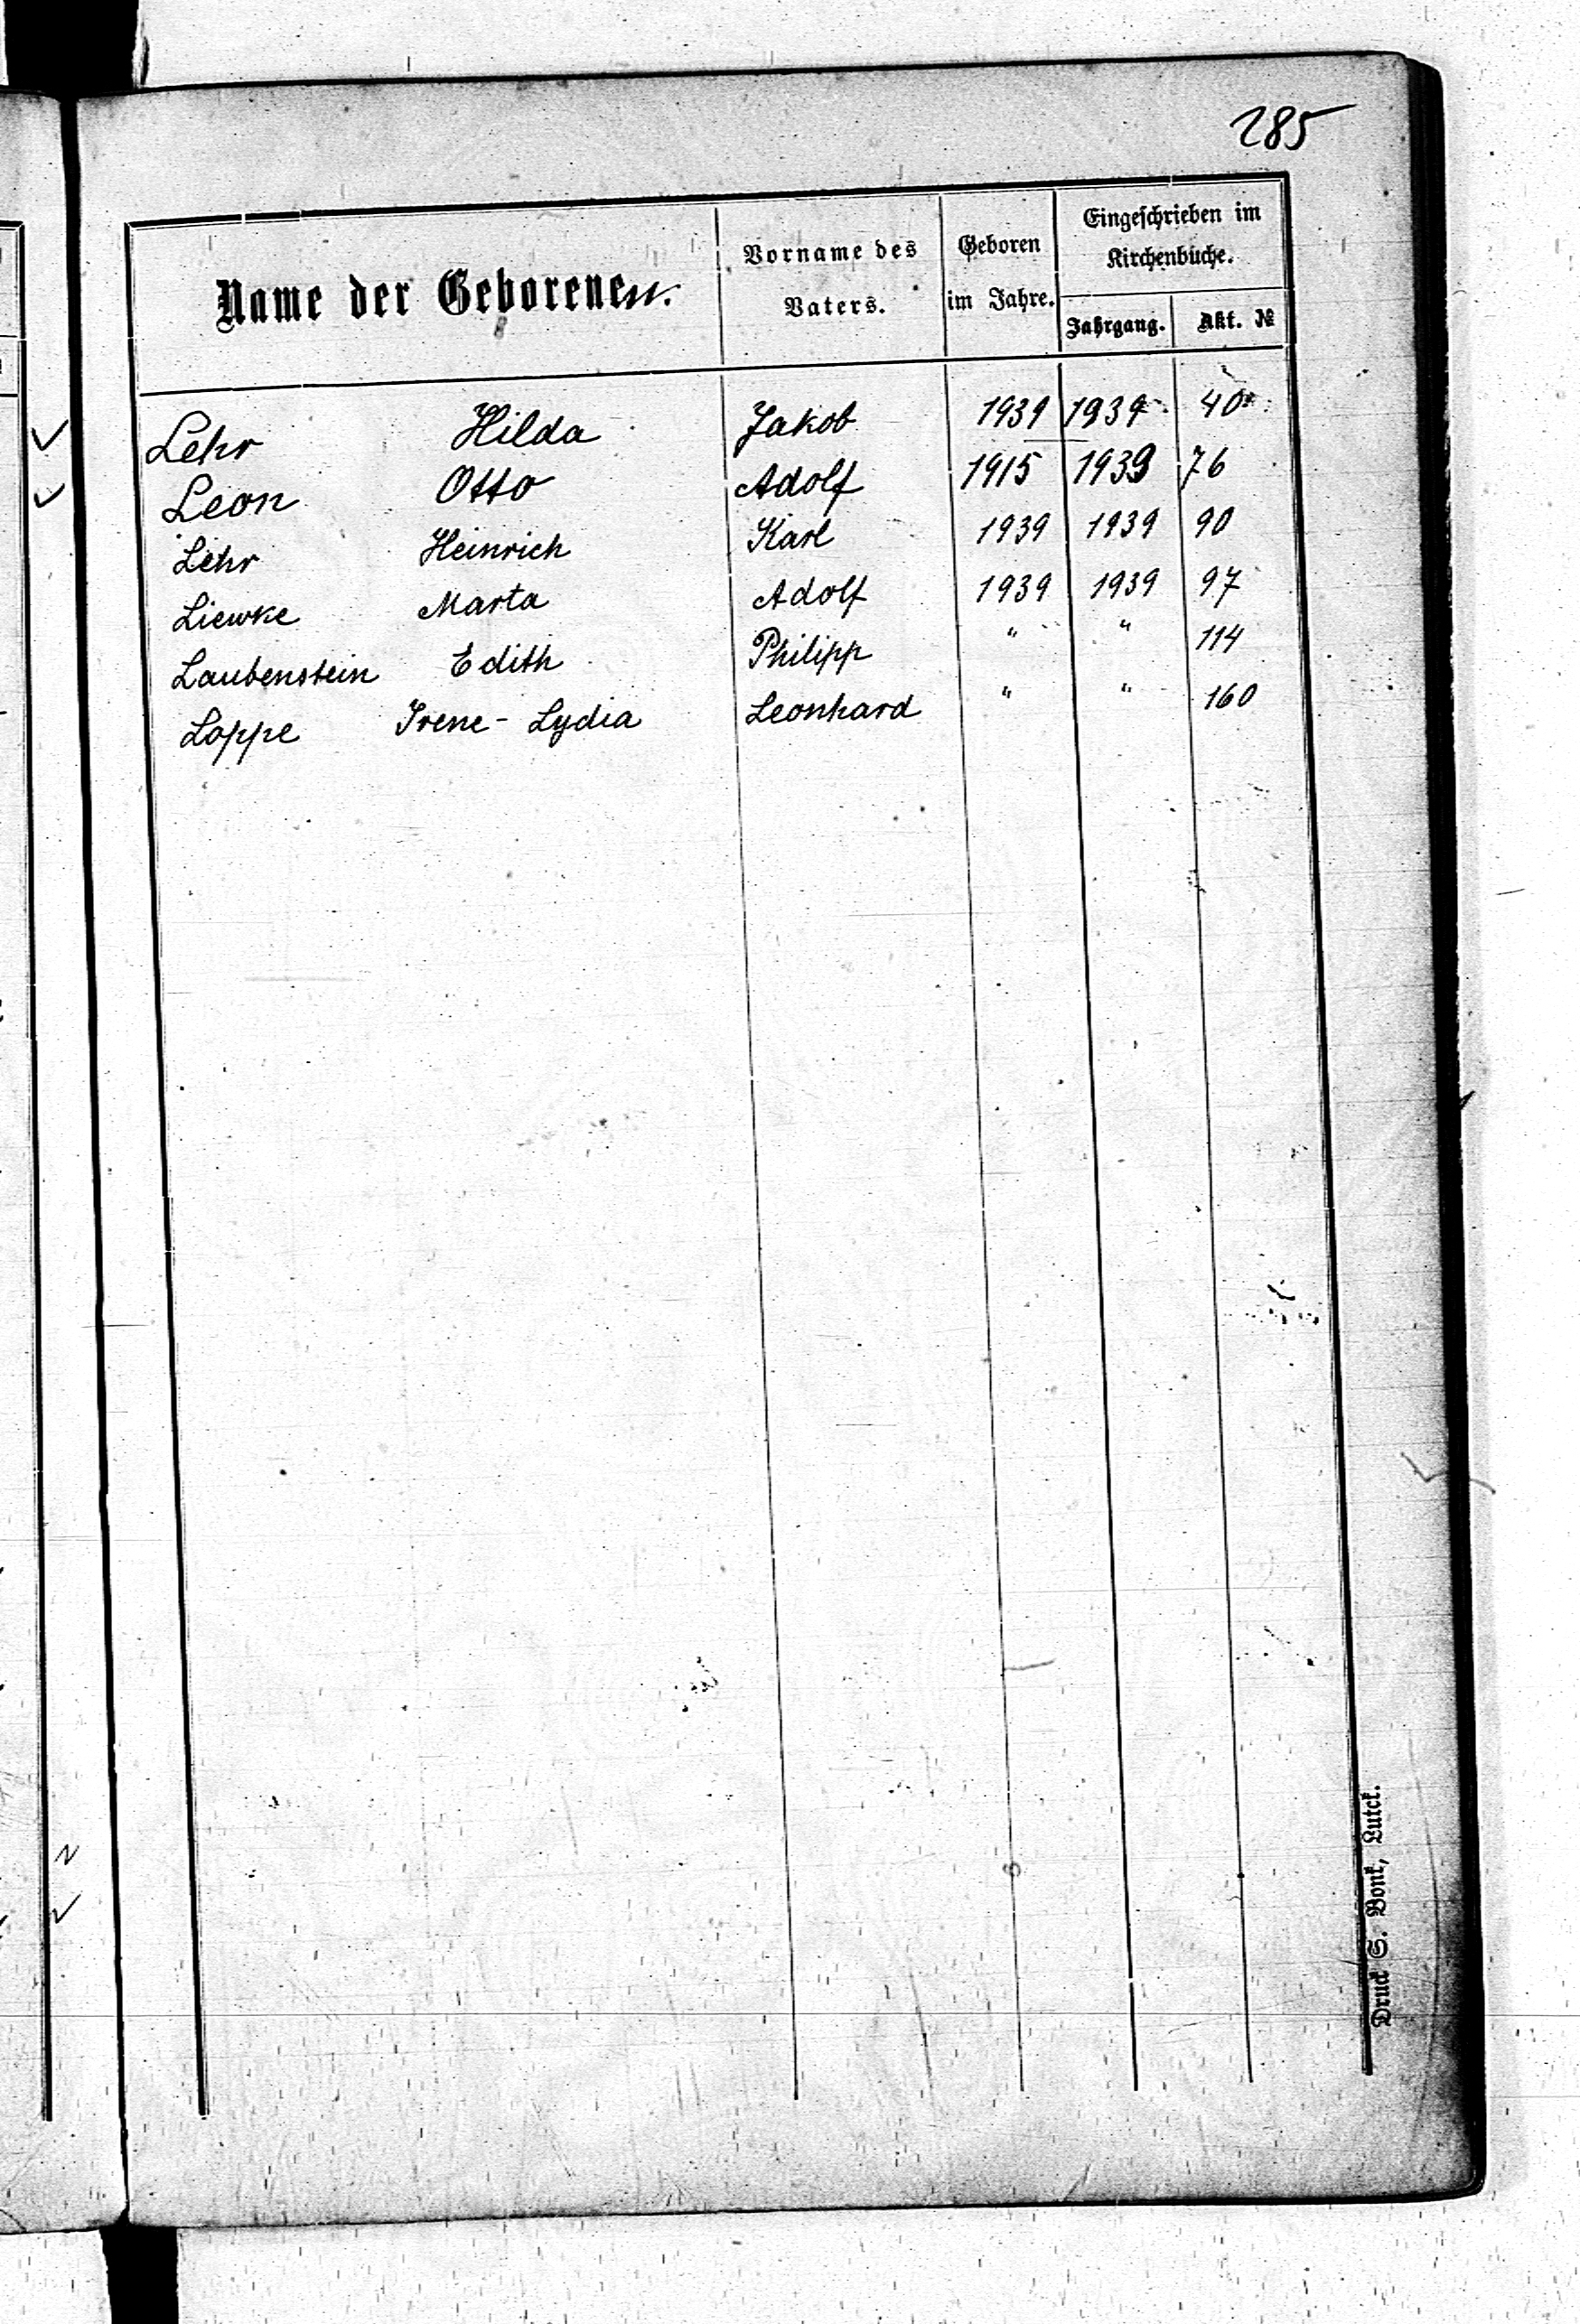 285
Name der Geborenen.
Vorname des
Vaters.
Geboren
im Jahre.
Eingeschrieben im
Kirchenbuche.
Jahrgang. Akt. №
Lehr Hilda Jakob 1939 1939 40
Leon Otto Adolf 1915 1939 76
Lehr Heinrich Karl 1939 1939 90
Liewke Marta Adolf 1939 1939 97
Laubenstein Edith Philipp " " 114
Loppe Irene - Lydia Leonhard " " 160
Druck S. Bonk, Lutck.